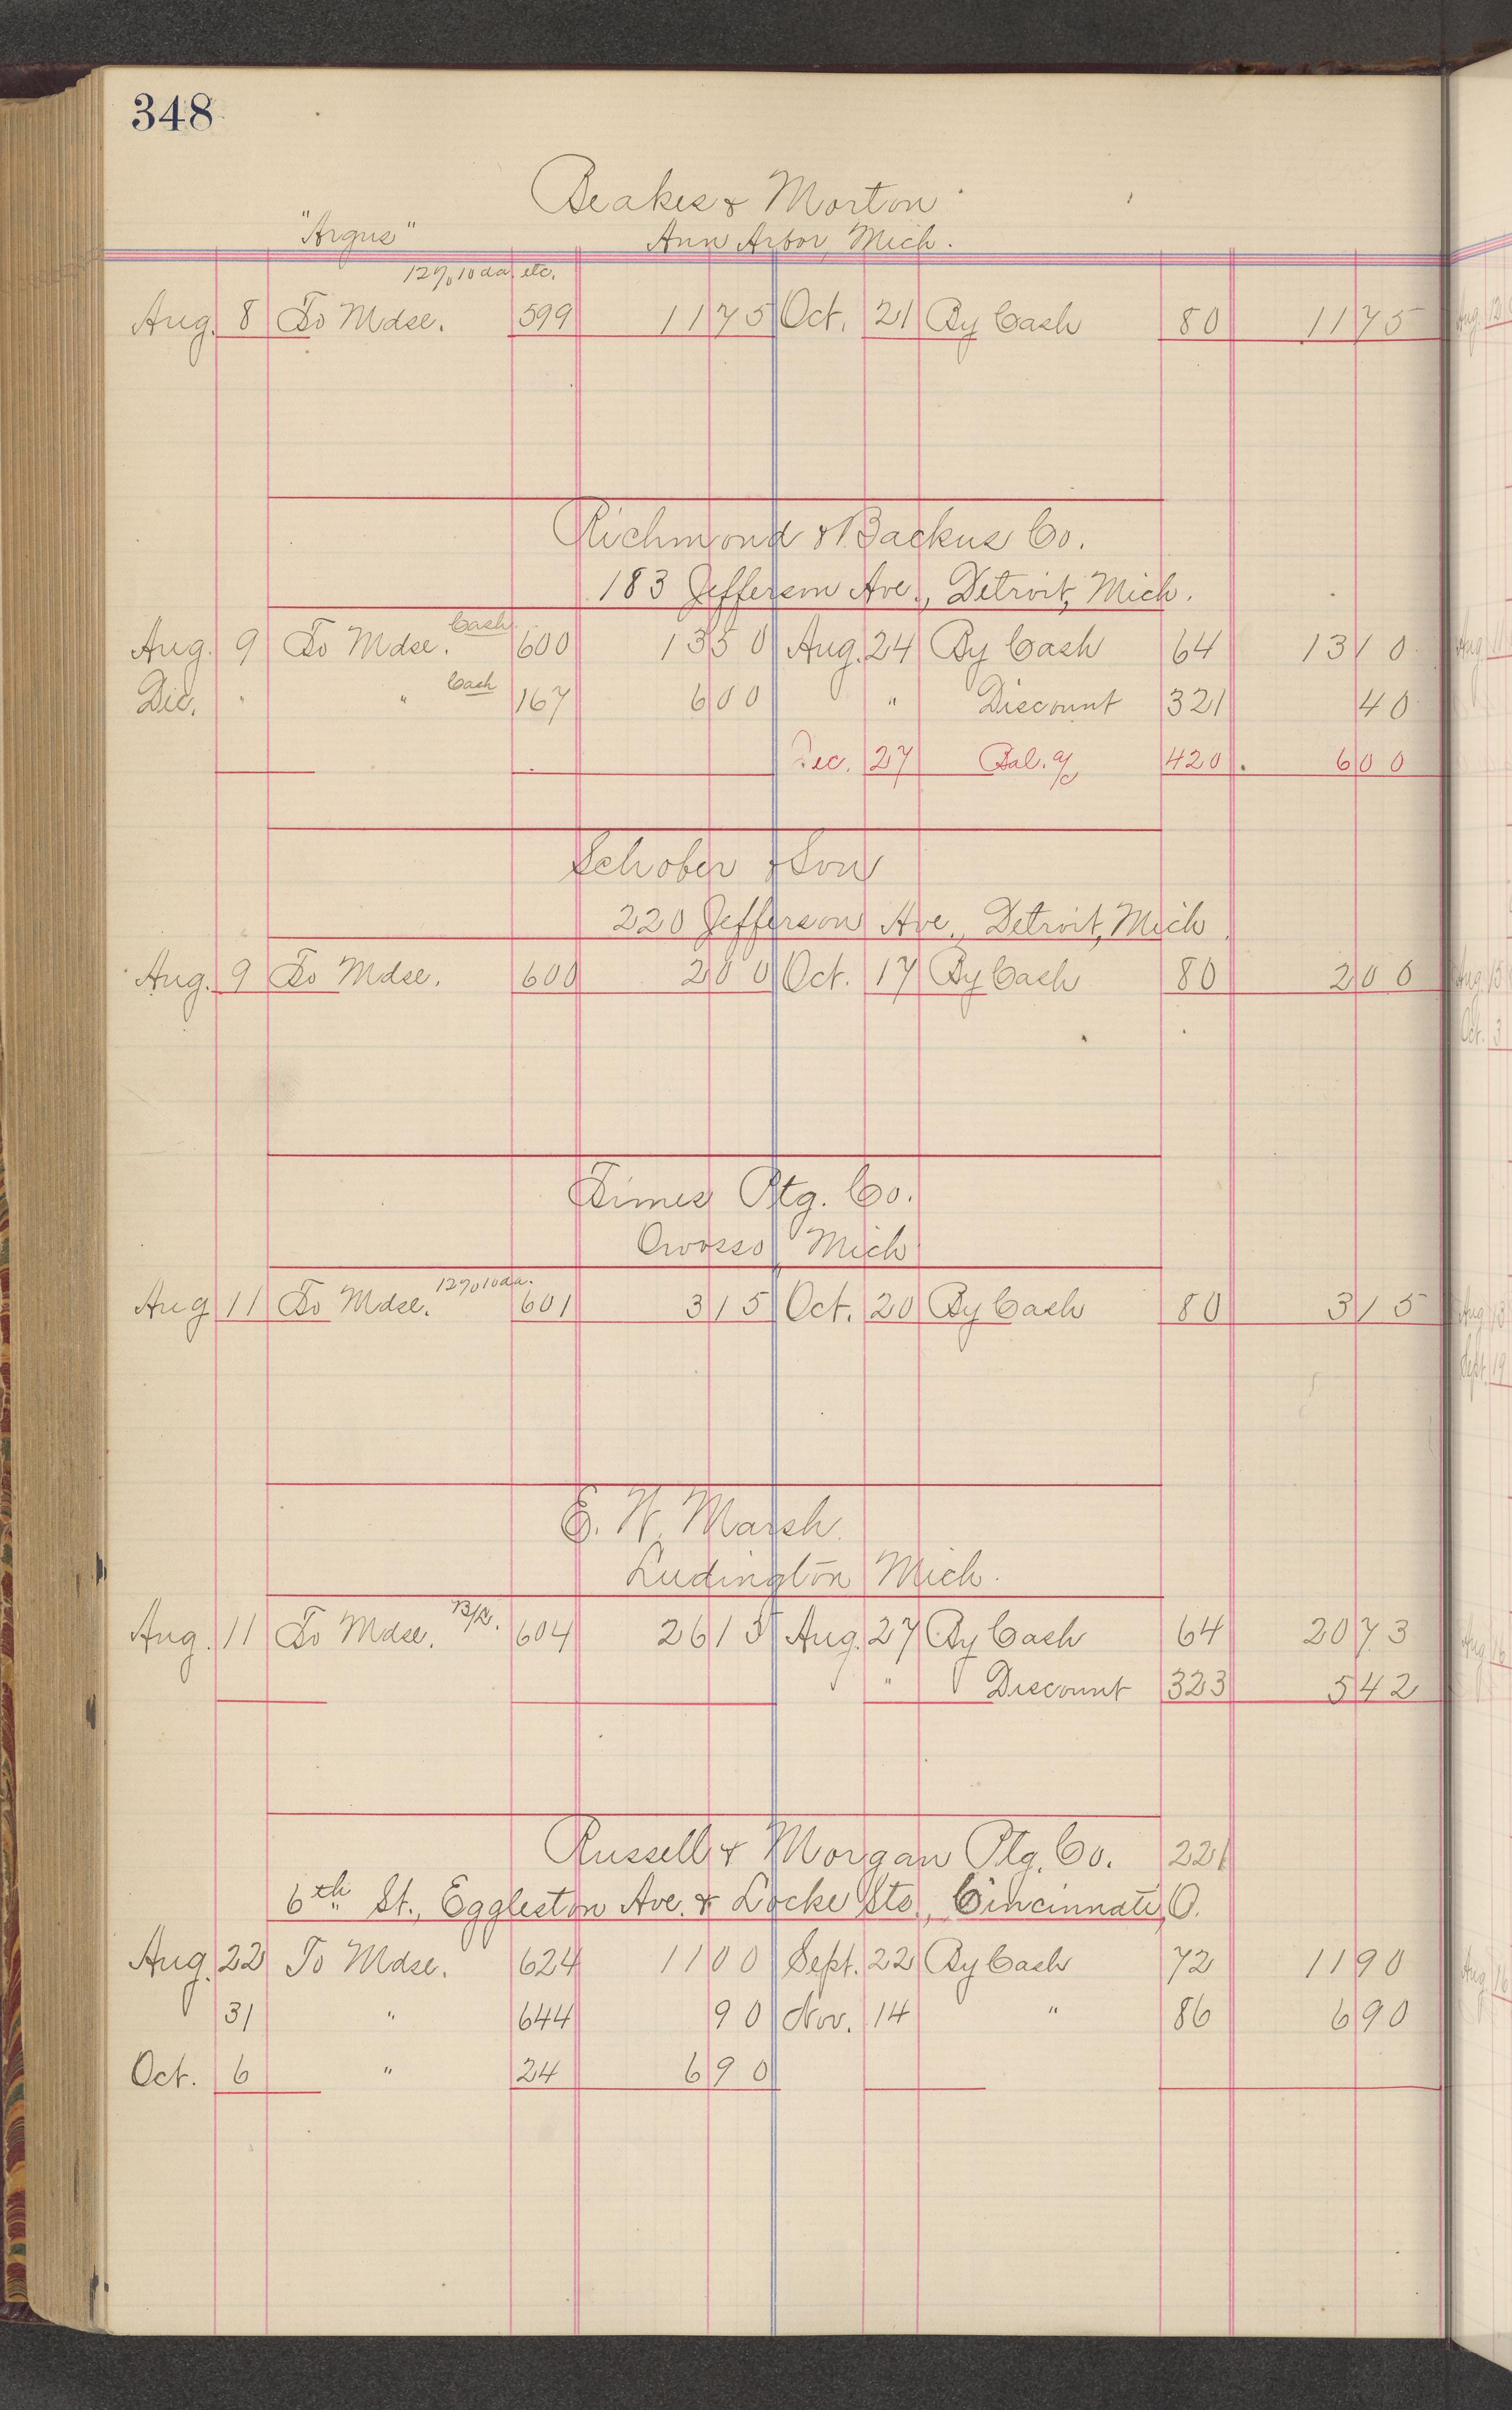 348
Beakes & Morton
"Argus" Ann Arbor, Mich.
12% 10 da. etc.
Aug. 8 To Mdse. 599 11 75 Oct. 21 By Cash 80 11 75
Richmond & Backus Co.
183 Jefferson Ave., Detroit, Mich.
Cash
Aug. 9 To Mdse. 600 13 50 Aug. 24 By Cash 64 13 10
Cash
Dec. " " 167 6 00 " Discount 321 40
Dec. 27 Bal. a/c 420 6 00
Schober & Son
220 Jefferson Ave., Detroit, Mich.
Aug. 9 To Mdse. 600 2 00 Oct. 17 By Cash 80 2 00
Times Ptg. Co.
Owosso, Mich
12% 10 da.
Aug 11 To Mdse. 601 3 15 Oct. 20 By Cash 80 3 15
E. W. Marsh
Ludington Mich.
B/R.
Aug. 11 To Mdse. 604 26 15 Aug. 27 By Cash 64 20 73
" Discount 323 5 42
Russell & Morgan Ptg. Co. 221
6th St., Eggleston Ave. & Locke Sts., Cincinnati, O.
Aug. 22 To Mdse. 624 11 00 Sept. 22 By Cash 72 11 90
31 " 644 90 Nov. 14 " 86 6 90
Oct. 6 " 24 6 90